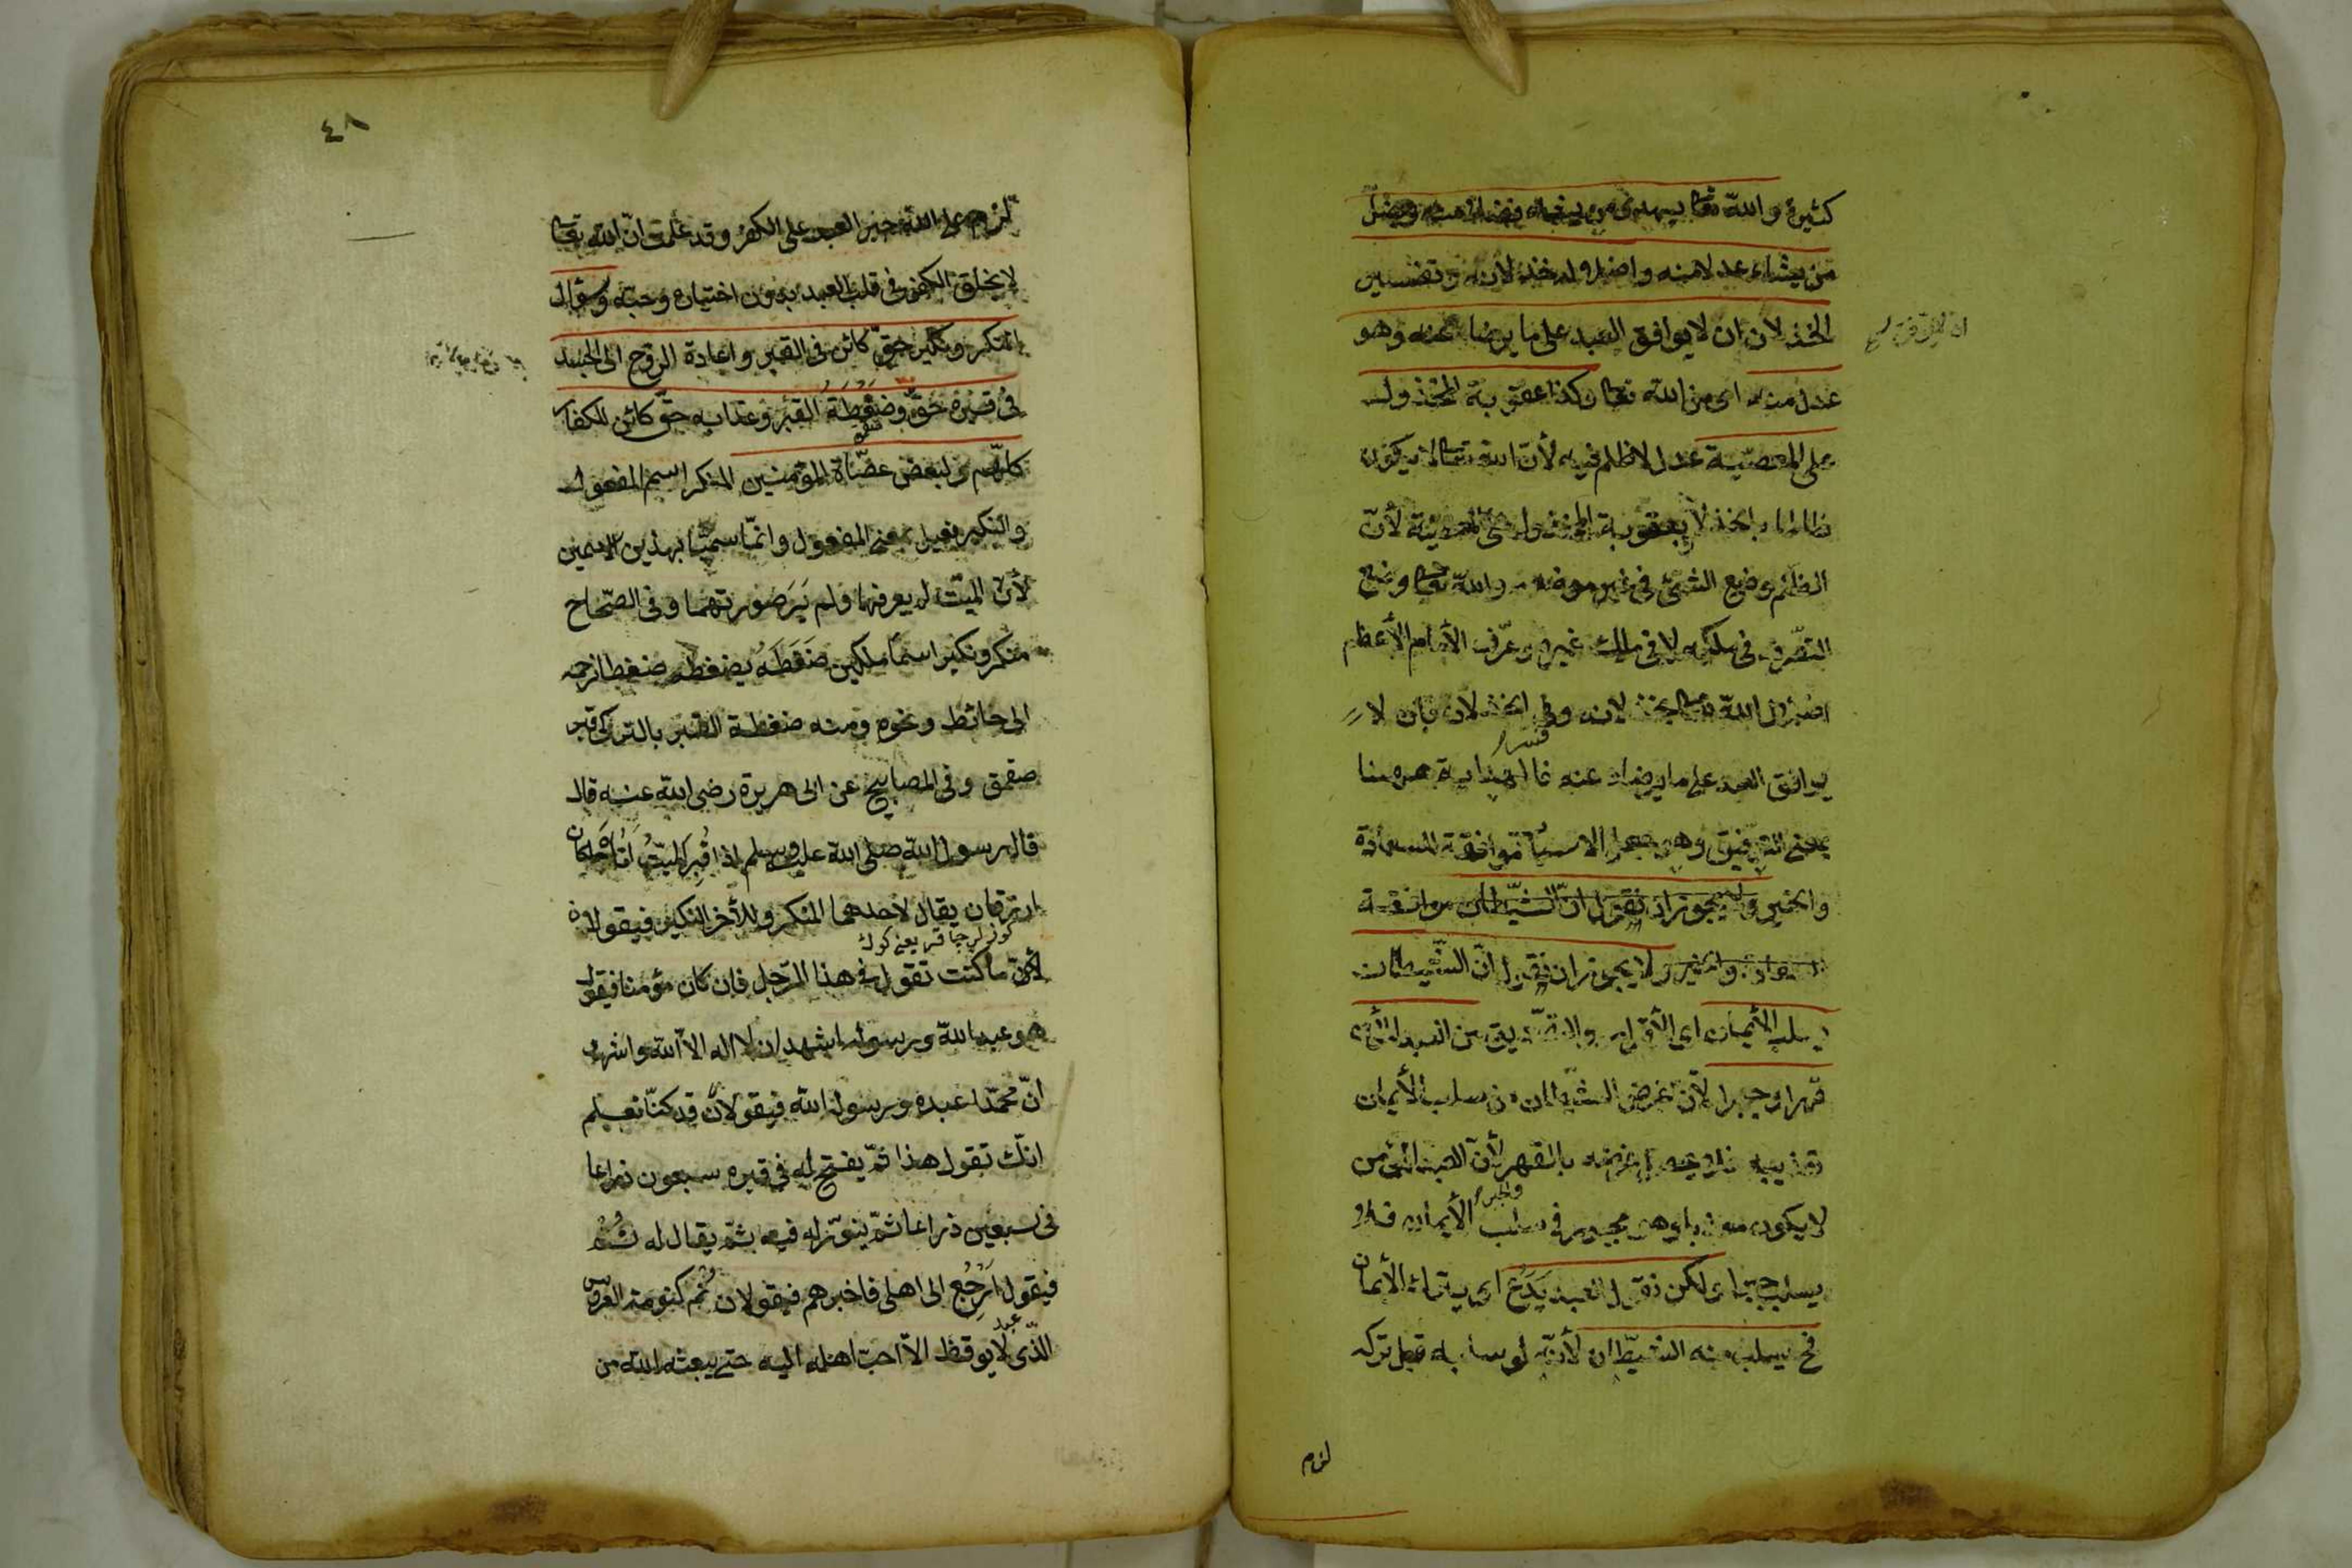 كثيرة والله تعا يهدى من يشاء فضلا منه ويضلّ
من يشاء عدلا منه واضلاله خذلانه وتفسير
الخذلان ان لا يوافق العبد على ما يرضاه عنه وهو
عدل منه اى من الله تعا وكذا عقوبة المخذول
على المعصية عدل لا ظلم فيه لأنّ الله تعا لا يكون
ظالما بالخذلا بعقوبة المخذول على المعصية لأنّ
الظلم وضع الشئ فى غير موضعه والله تعا وضع
التصرف فى ملكه لا فى ملك غيره وعرّف الأمام الأعظم
اضلال الله تعا بخذلانه وفسر الخذلان بان لا
يوافق العبد على ما يرضاه عنه فالهداية ههنا
بمعنى التوفيق وهو جعل الاسباب موافقة للسعادة
والخير ولا يجوز ان نقول انّ الشيطان موافقة
السعادة والخير ولا يجوز ان نقول انّ الشيطان
يسلب الأيمان اى الأقرار والتصديق من العبد المؤمن
قهرا وجبرا لأنّ غرض الشيطان من سلب الأيمان
تعذيبه فلا يحصل غرضه بالقهر لأنّ العبد المؤمن
لا يكون معذبا وهو مجبور فى سلب الأيمان والجبر فلا
يسلب جبرا ولكن نقول العبد يَدَعُ اى يترك الأيمان
فح يسلب منه الشيطان لأنّه لو سلبه قبل تركه
لزم
٤٨
لزم على الله جبر العبد على الكفر وقد علمت انّ الله تعا
لا يخلق الكفر فى قلب العبد بدون اختياره وحبّه وسؤال
المنكر ونكير حقّ كائن فى القبر واعادة الروح الى الجسد
فى قبره حقّ وضَغْطَةُ القبر وعذابه حقّ كائن للكفار
كلهم ولبعض عصاة المؤمنين المنكر اسم المفعول
والنكير فعيل بمعنى المفعول وانّما سمّيا بهذين الاسمين
لأنّ الميّت لم يعرفهما ولم يَرَ صورتهما وفى الصّحاح
منكر ونكير اسما ملكين ضَغَطَهُ يضغطه ضغطا زحمه
الى حائط ونحوه ومنه ضغطة القبر بالتركى قبر
صقمق وفى المصابيح عن ابى هريرة رضى الله عنه قال
قال رسول الله صلى الله عليه وسلم اذا قُبِرَ الميّتُ أتَاهُ ملكان
ازرقان يقال لاحدهما المنكر وللأخر النكير فيقولان
كوزلرى چاقر يعنى كوك
له ما كنت تقول فى هذا الرّجل فان كان مؤمنا فيقول
هو عبد الله ورسوله اشهد ان لا اله الا الله واشهد
انّ محمّدا عبده ورسول الله فيقولان قد كنّا نعلم
انّك تقول هذا ثمّ يفتح له فى قبره سبعون ذراعا
فى سبعين ذراعا ثمّ ينوّر له فيه ثمّ يقال له نَمْ
فيقول اَرْجِعُ الى اهلى فاخبرهم فيقولان نم كنومة العروس
الّذى لا يوقظه الاّ احبّ اهله اليه حتى يبعثه الله من